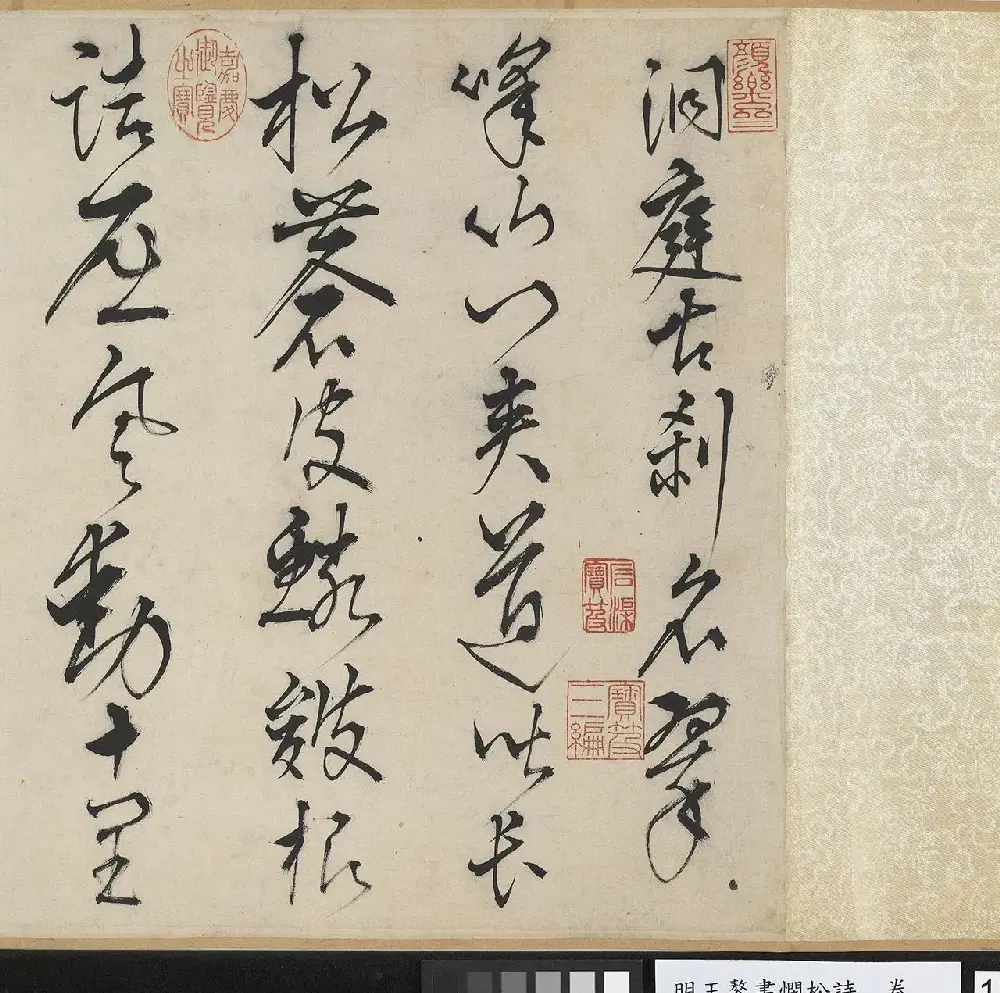 洞庭古刹名翠
峯山門夾道皆長
松蒼皮鱗皴根
詰屈風動十里
石渠寶笈
寶笈三編
嘉慶御覽之寶
明王鏊書憫松詩 卷
1